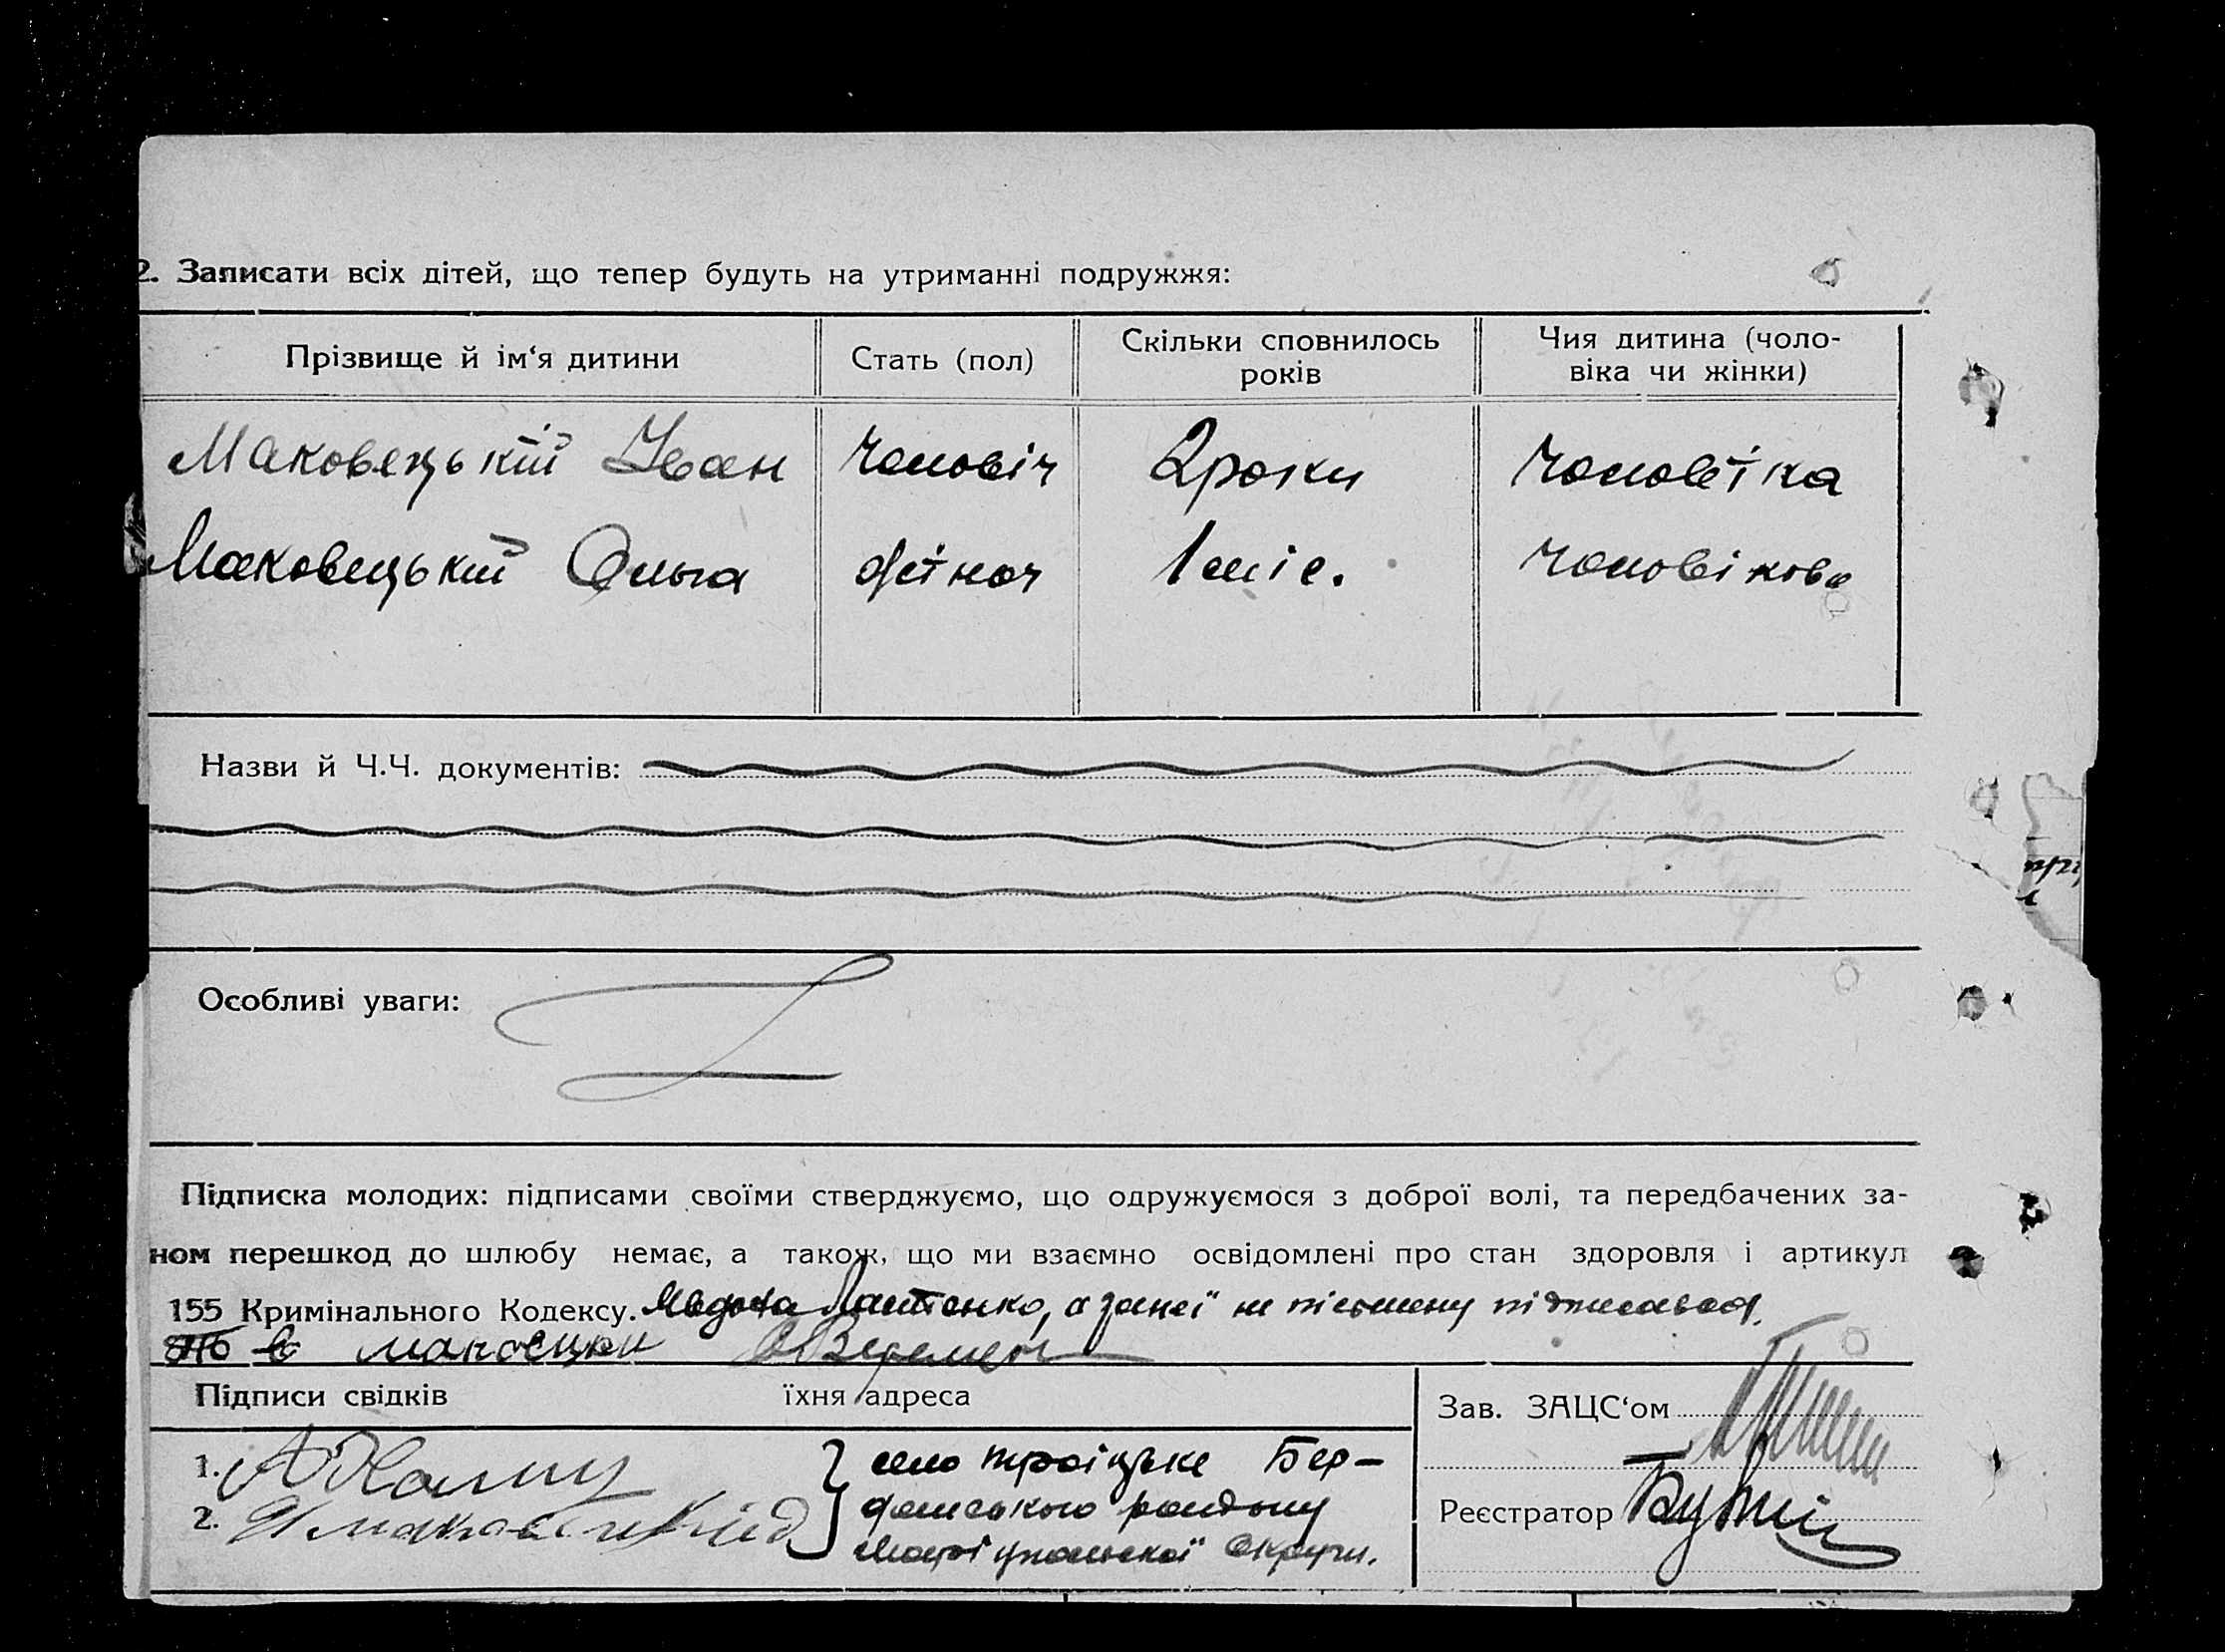 2. Записати всіх дітей, що тепер будуть на утриманні подружжя:
Прізвище й ім‘я дитини
Стать (пол)
Скільки сповнилось років
Чия дитина (чоло-
віка чи жінки)
Маковецький Іван чоловіч 2 роки чоловіка
Маковецький Ольга жіноч 1 міс. чоловікова
Назви й Ч.Ч. документів:
Особливі уваги:
Підписка молодих: підписами своїми стверджуємо, що одружуємося з доброї волі, та передбачених за-
ном перешкод до шлюбу немає, а також, що ми взаємно освідомлені про стан здоровля і артикул
155 Кримінального Кодексу. а за неї не письмену підписався
Підписи свідків їхня адреса
Зав. ЗАЦС‘ом
1.
2.
село Троіцьке Бер-
дянського району
Маріупольскої Округи.
Реєстратор